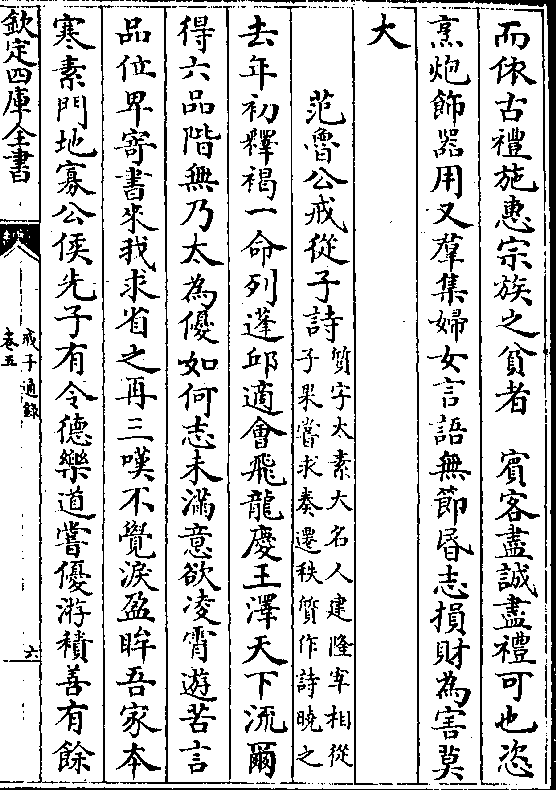 而依古禮施惠宗族之貧者　賓客盡誠盡禮可也恣
烹炮飾器用又羣集婦女言語無節昏志損財為害莫
大
范魯公戒從子詩
質字太素大名人建隆宰相從
子杲嘗求奏遷秩質作詩曉之
去年初釋褐一命列蓬邱適會飛龍慶王澤天下流爾
得六品階無乃太為優如何志未滿意欲凌霄遊苦言
品位卑寄書來我求省之再三嘆不覺淚盈眸吾家本
寒素門地寡公侯先子有令德樂道嘗優游積善有餘
欽定四庫全書
戒子通錄
卷五
六